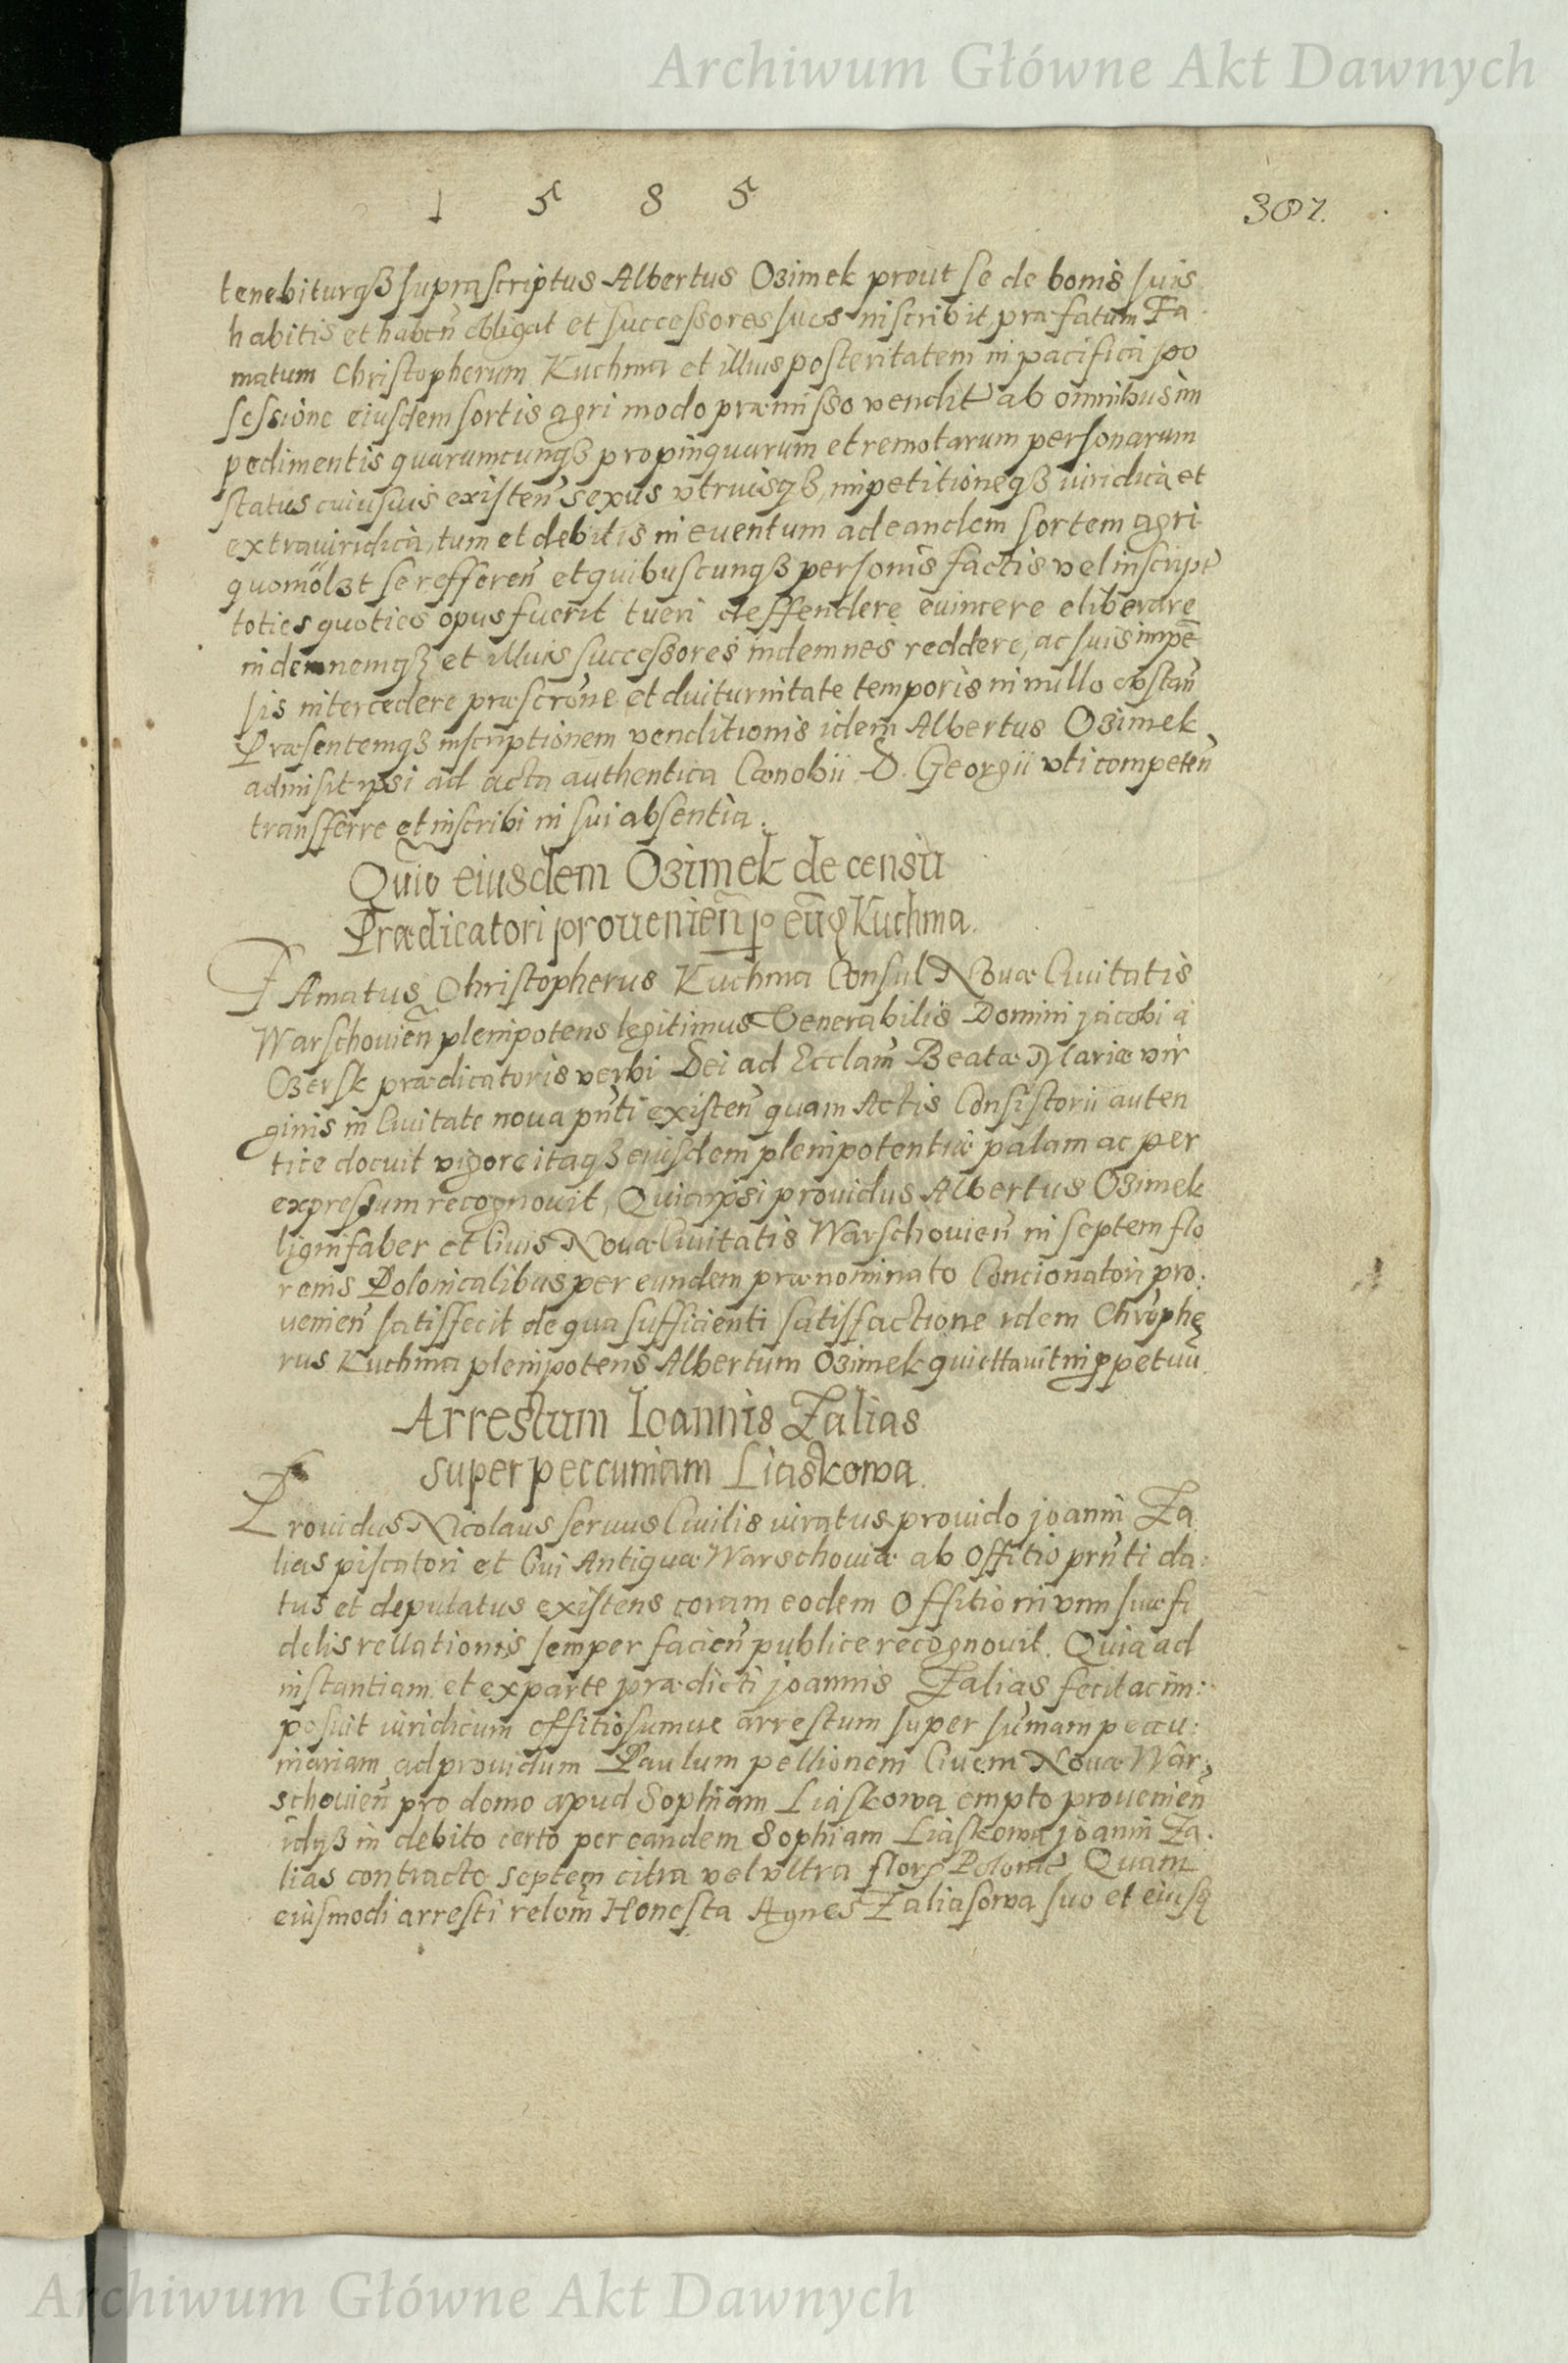 Archiwum Główne Akt Dawnych
1 5 8 5
307.
tenebiturqȝ suprascriptus Albertus Ozimek prout se de bonis suis
habitis et haben̄ obligat et successores suos inscribit præfatum Fa
matum Christopherum Kuchma et illius posteritatem in pacifica pos
sessione eiusdem sortis agri modo præmisso vendit ab omnibus im
pedimentis quarumcunqȝ propinquarum et remotarum personarum
status cuiusuis existen̄ sexus vtriusqȝ, impetitioneqȝ iuridica et
extraiuridica, tum et debitis in euentum ad eandem sortem agri
quomolȝt se refferen̄ et quibuscunqȝ personis factis vel inscript
toties quoties opus fuerit tueri deffendere euincere eliberare
indemnemqȝ et illius successores indemnes reddere, ac suis impē
sis intercedere præscrōne et diuturnitate temporis in nullo obstan̄
Præsentemqȝ inscriptionem venditionis idem Albertus Ozimek
admisit ipsi ad acta authentica Cœnobii D. Georgii vti competen̄
transferre et inscribi in sui absentia.
Quio eiusdem Ozimek de censu
Prædicatori prouenien̄ p eūd Kuchma.
FAmatus Christopherus Kuchma Consul Nouæ Ciuitatis
Warschouien̄ plenipotens legitimus Venerabilis Domini jacobi a
Ozersk prædicatoris verbi Dei ad Ecclām Beatæ Mariæ vir
ginis in Ciuitate noua pn̄ti existen̄ quam Actis Consistorii auten
tice docuit vigore itaqȝ eiusdem plenipotentiæ palam ac per
expressum recognouit, Quia ipsi prouidus Albertus Ozimek
lignifaber et Ciuis Nouæ Ciuitatis Warschouien̄ in septem flo
renis Polonicalibus per eundem prænominato Concionatori pro:
uenien̄ satisfecit de qua sufficienti satisfactione idem Chrōphe
rus Kuchma plenipotens Albertum Ozimek quiettauit in ppetuū
Arrestum Ioannis Zalias
super peccuniam Liaskowa.
Prouidus Nicolaus seruus Ciuilis iuratus prouido joanni Za
lias piscatori et Ciui Antiquæ Warschouiæ ab Offitio prn̄ti da:
tus et deputatus existens coram eodem Offitio in vim suæ fi
delis rellationis semper facien̄ publice recognouit. Quia ad
instantiam et ex parte prædicti joannis Zalias fecit ac im:
posuit iuridicum offitiosumue arrestum super sum̄am peccu:
niariam ad prouidum Paulum pellionem Ciuem Nouæ War:
schouien̄ pro domo apud Sophiam Liaskowa empto prouenien̄
idqȝ in debito certo per eandem Sophiam Liaskowa joanni Za:
lias contracto septem citra vel vltra flor Polonic Quam
eiusmodi arresti relōm Honesta Agnes Zaliasowa suo et eiusq
Archiwum Główne Akt Dawnych